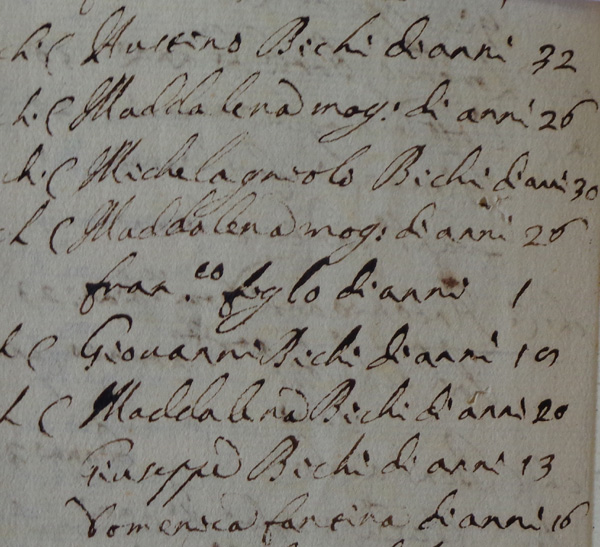 h. C Austino Bichi di anni 32
h. C Maddalena mog: di anni 26
h. C Michelagniolo Bichi di anni 30
h C Maddalena mog: di anni 26
fran.co figlo di anni 1
h C Giovanni Bichi di anni 19
h C Maddalena Bichi di anni 20
Giuseppe Bichi di anni 13
Domenica fantina di anni 16